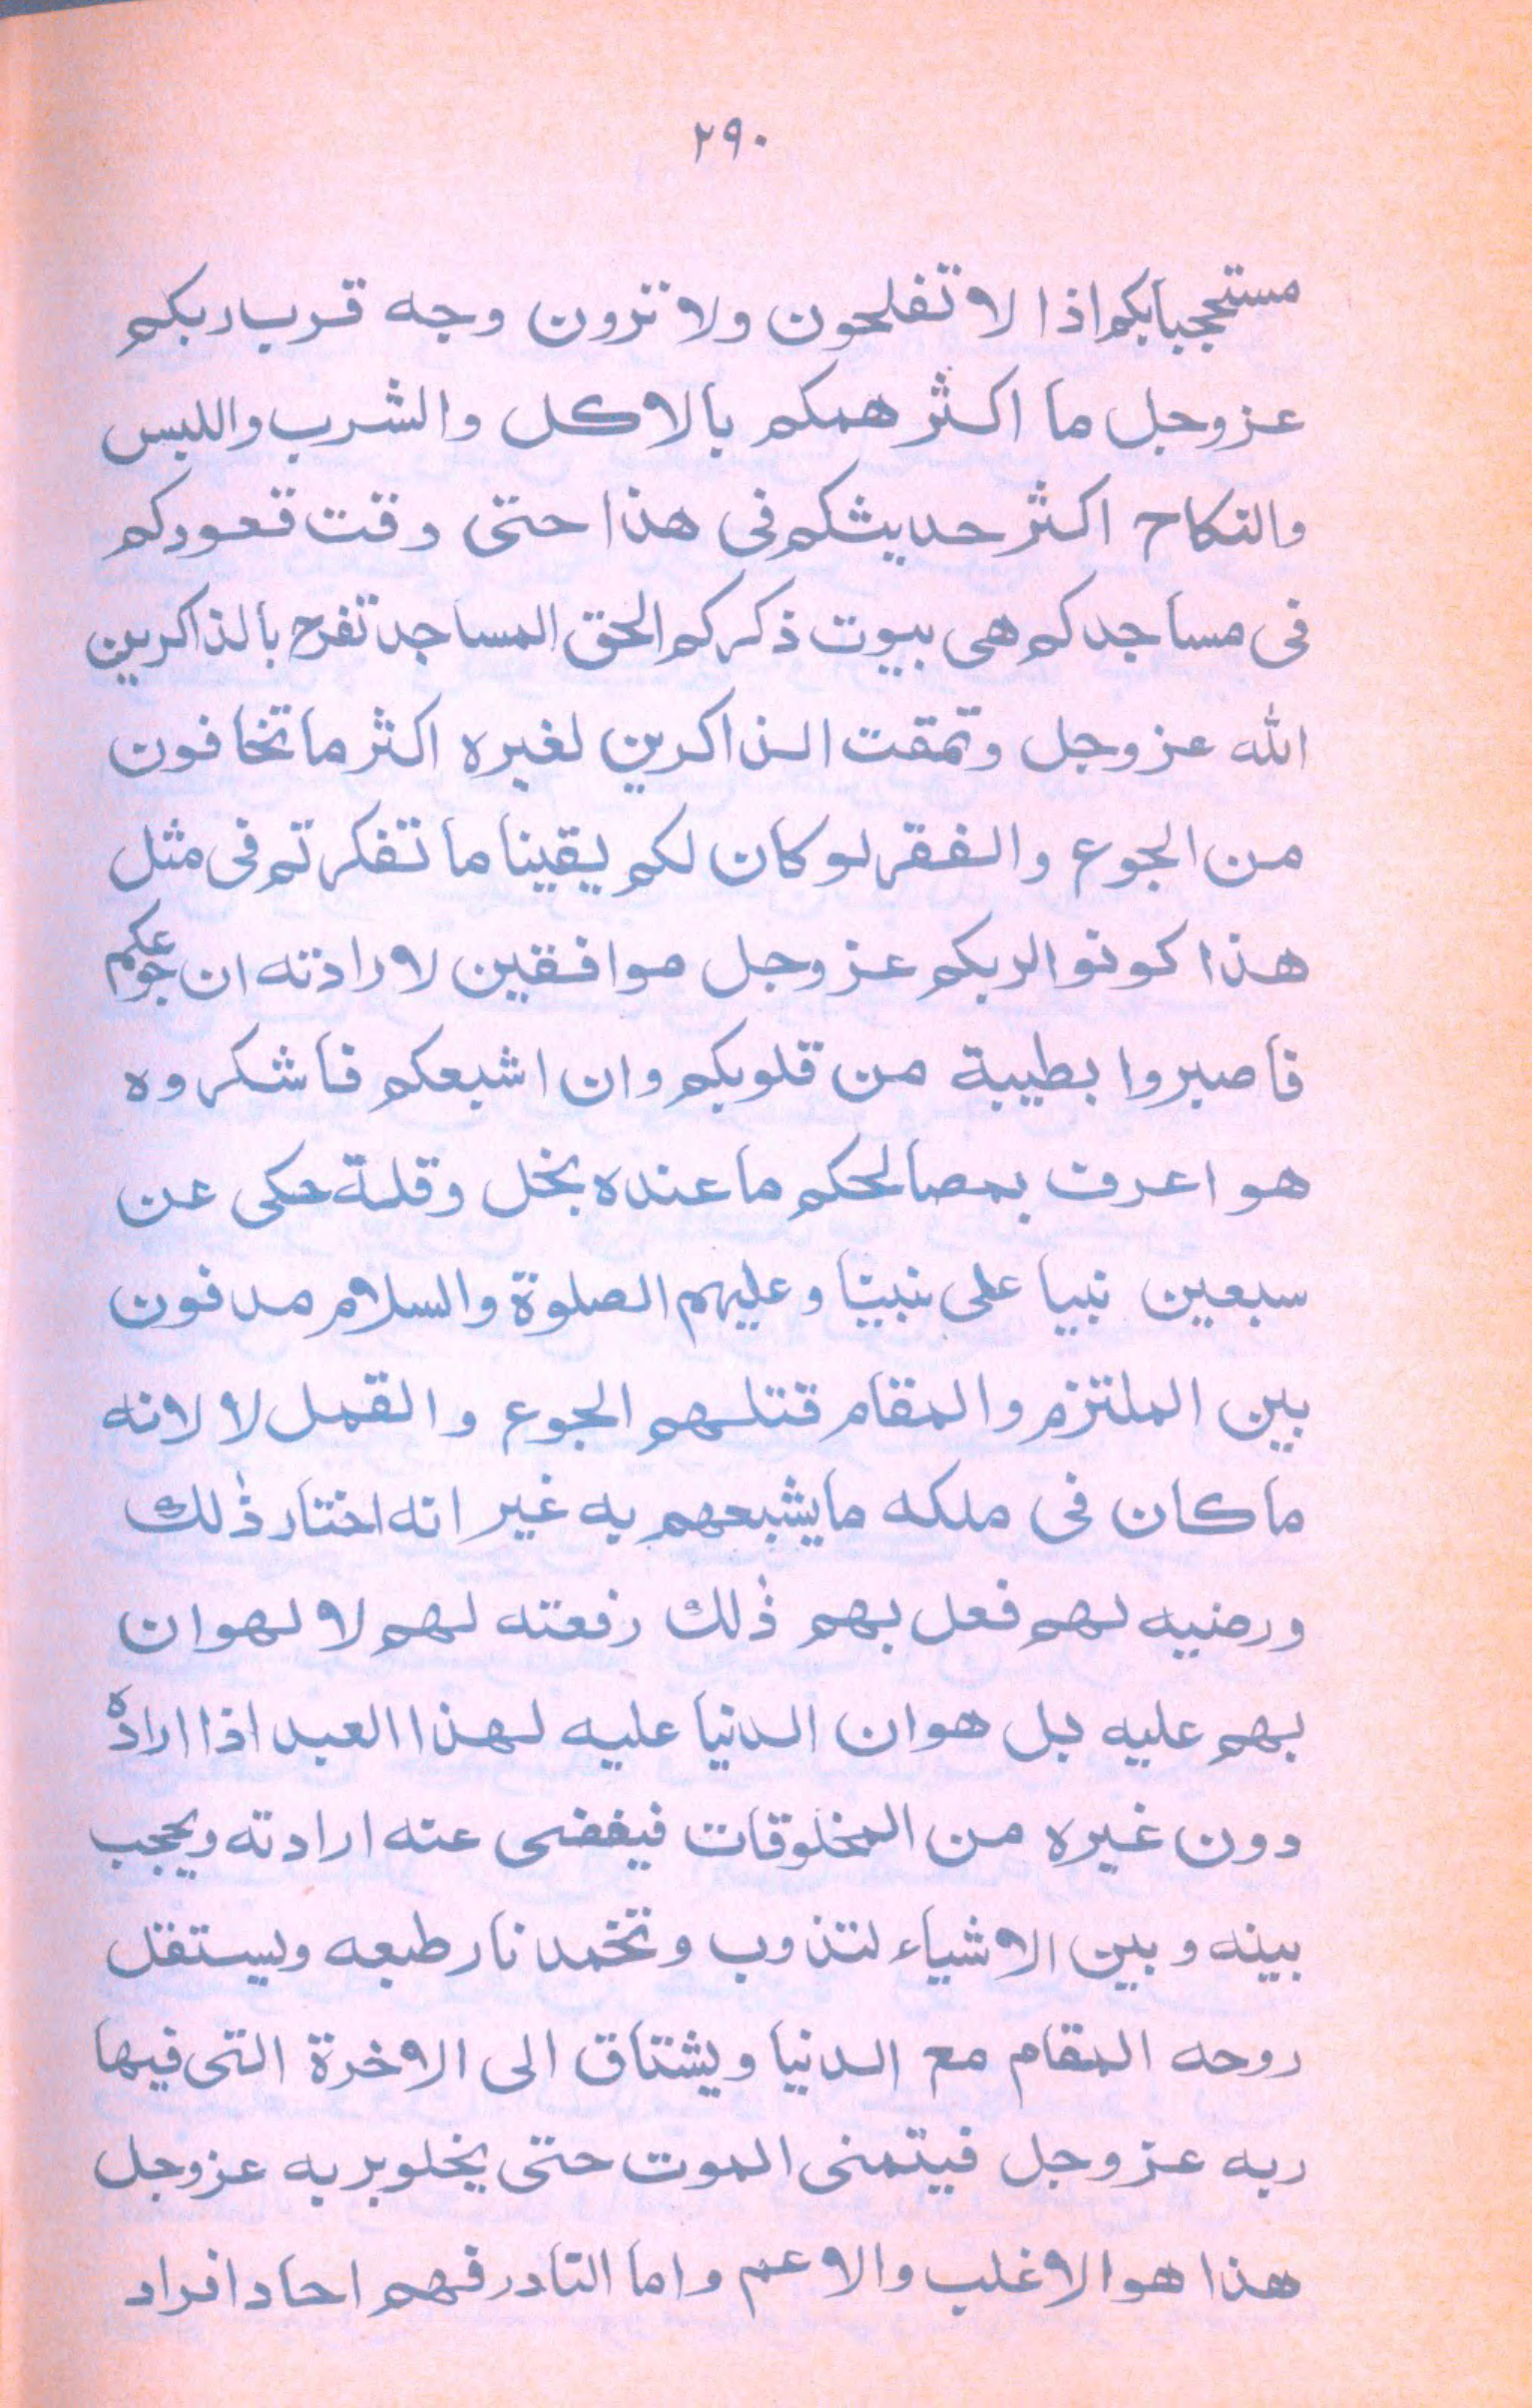 ٢٩٠
مستحجبابكم اذا لا تفلحون ولا ترون وجه قرب ربكم
عزوجل ما اكثر همكم بالاكل والشرب واللبس
والنكاح اكثر حديثكم فى هذا حتى وقت قعودكم
فى مساجدكم هى بيوت ذكركم الحق المساجد تفرح بالذاكرين
الله عزوجل وتمقت الذاكرين لغيره اكثر ما تخافون
من الجوع والفقر لوكان لكم يقينا ما تفكرتم فى مثل
هذا كونوا لربكم عزوجل موافقين لارادته ان جوعكم
فاصبروا بطيبة من قلوبكم وان اشبعكم فاشكروه
هو اعرف بمصالحكم ما عنده بخل وقلة حكى عن
سبعين نبيا على نبينا وعليهم الصلوة والسلام مدفون
بين الملتزم والمقام قتلهم الجوع والقمل لا لانه
ماكان فى ملكه مايشبعهم به غير انه اختار ذٰلك
ورضيه لهم فعل بهم ذٰلك رفعته لهم لا لهوان
بهم عليه بل هوان الدنيا عليه لهذا العبد اذا اراده
دون غيره من المخلوقات فيغضى عنه ارادته ويحجب
بينه وبين الاشياء لتذوب وتخمد نار طبعه ويستقل
روحه المقام مع الدنيا ويشتاق الى الاخرة التى فيها
ربه عزوجل فيتمنى الموت حتى يخلو بربه عزوجل
هذا هو الاغلب والاعم واما النادر فهم احاد افراد